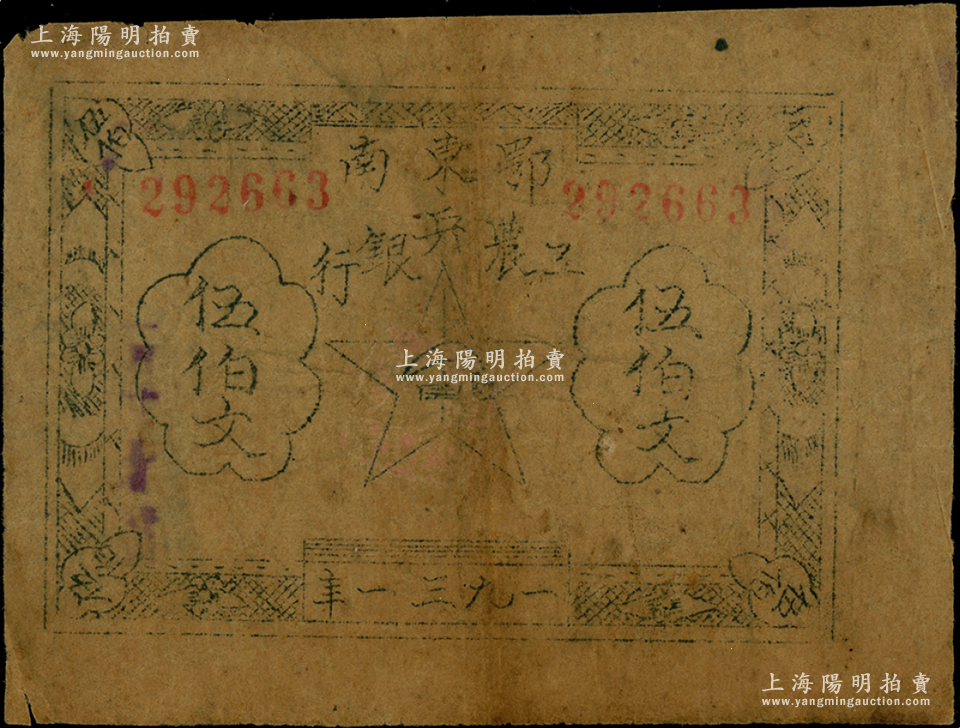 上海陽明拍賣
www.yangmingauction.com
伍伯
鄂東南
292663
292663
工農兵銀行
伍伯文
伍伯文
上海陽明拍賣
www.yangmingauction.com
一九三一年
上海陽明拍賣
www.yangmingauction.com